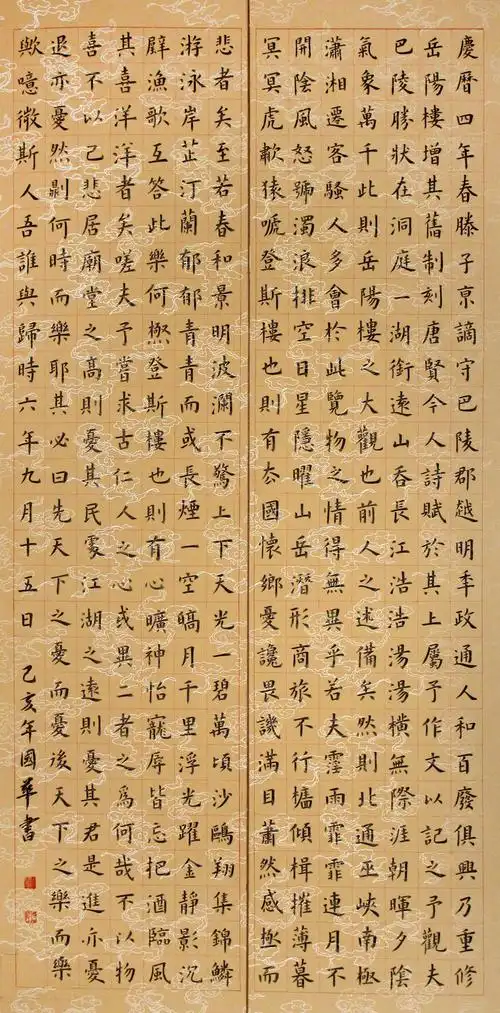 慶曆四年春滕子京謫守巴陵郡越明年政通人和百廢俱興乃重修
岳陽樓增其舊制刻唐賢今人詩賦於其上屬予作文以記之予觀夫
巴陵勝狀在洞庭一湖銜遠山吞長江浩浩湯湯橫無際涯朝暉夕陰
氣象萬千此則岳陽樓之大觀也前人之述備矣然則北通巫峽南極
瀟湘遷客騷人多會於此覽物之情得無異乎若夫霪雨霏霏連月不
開陰風怒號濁浪排空日星隱曜山岳潛形商旅不行檣傾楫摧薄暮
冥冥虎歗猿嗁登斯樓也則有去國懷鄉憂讒畏譏滿目蕭然感極而
悲者矣至若春和景明波瀾不驚上下天光一碧萬頃沙鷗翔集錦鱗
游泳岸芷汀蘭郁郁青青而或長煙一空皜月千里浮光躍金靜影沉
璧漁歌互答此樂何極登斯樓也則有心曠神怡寵辱皆忘把酒臨風
其喜洋洋者矣嗟夫予嘗求古仁人之心或異二者之為何哉不以物
喜不以己悲居廟堂之高則憂其民處江湖之遠則憂其君是進亦憂
退亦憂然則何時而樂耶其必曰先天下之憂而憂後天下之樂而樂
歟噫微斯人吾誰與歸時六年九月十五日 己亥年國華書